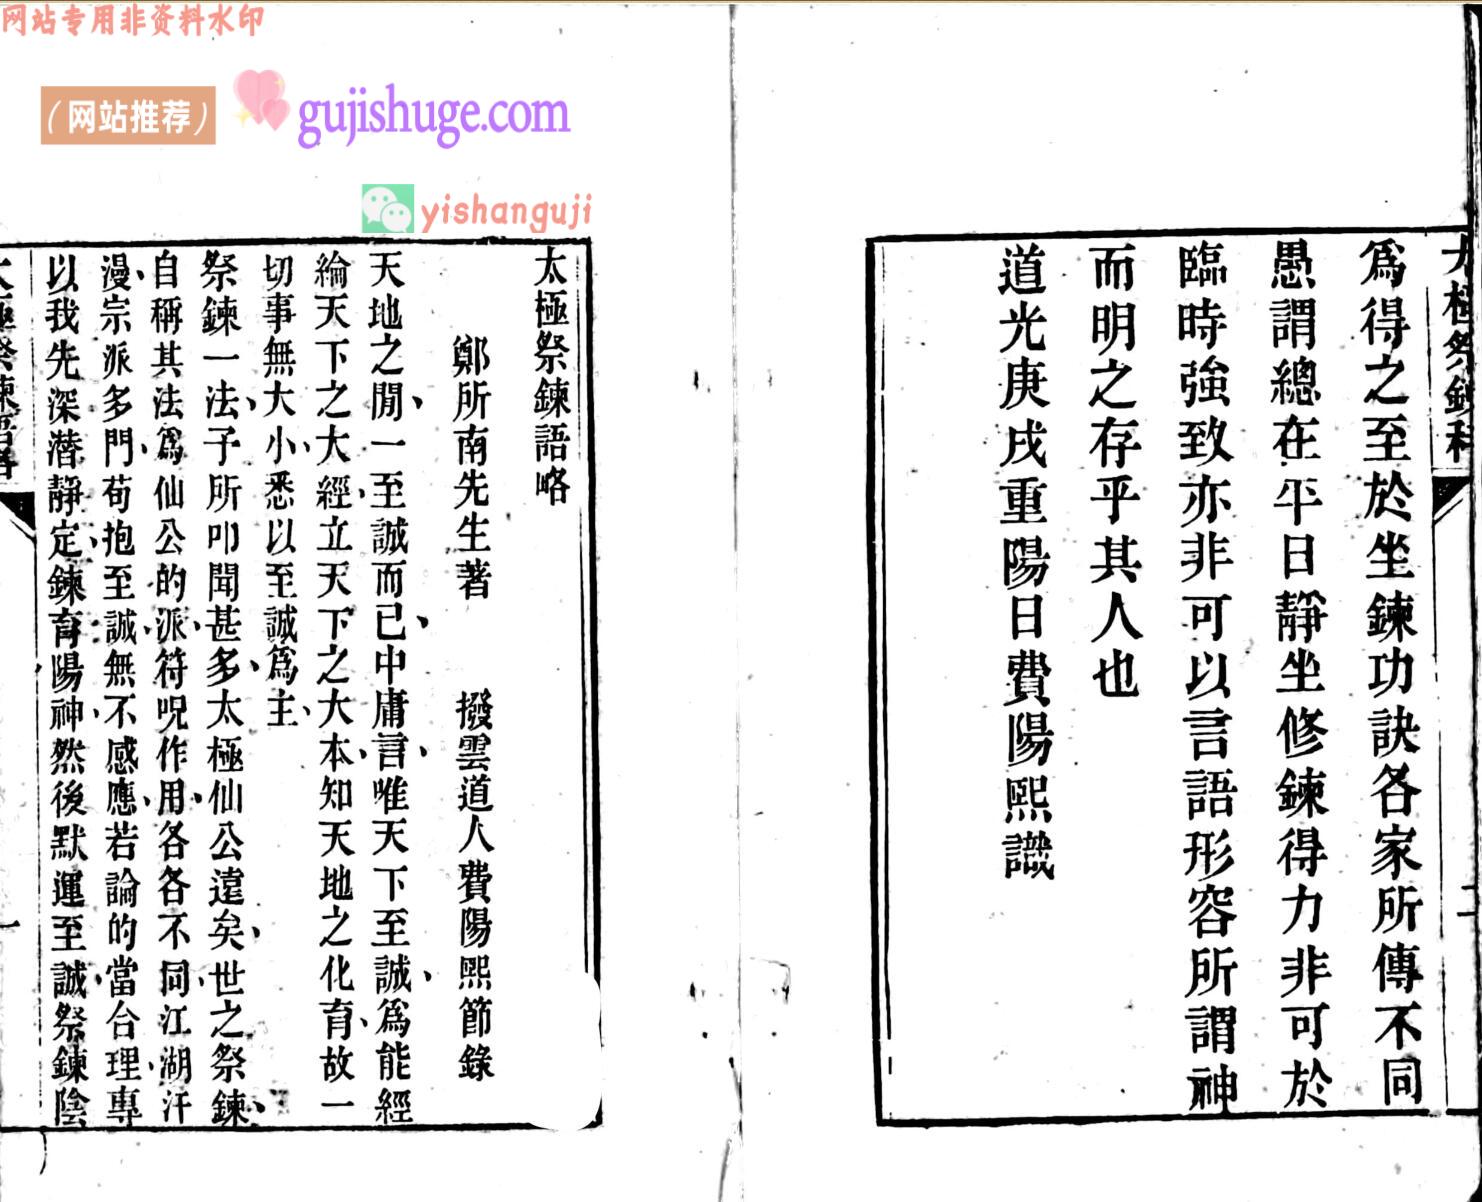 网站专用非资料水印
(网站推荐)
gujishuge.com
yishanguji
太極祭鍊科
爲得之至於坐鍊功訣各家所傳不同
愚謂總在平日靜坐修鍊得力非可於
臨時強致亦非可以言語形容所謂神
而明之存乎其人也
道光庚戌重陽日費陽熙識
二
太極祭鍊語略
鄭所南先生著 撥雲道人費陽熙節錄
天地之閒一至誠而已中庸言唯天下至誠爲能經
綸天下之大經立天下之大本知天地之化育故一
切事無大小悉以至誠爲主
祭鍊一法子所叩聞甚多太極仙公遠矣世之祭鍊
自稱其法爲仙公的派符呪作用各各不同江湖汗
漫宗派多門苟抱至誠無不感應若論的當合理專
以我先深潛靜定鍊育陽神然後默運至誠祭鍊陰
太極祭鍊語略
一